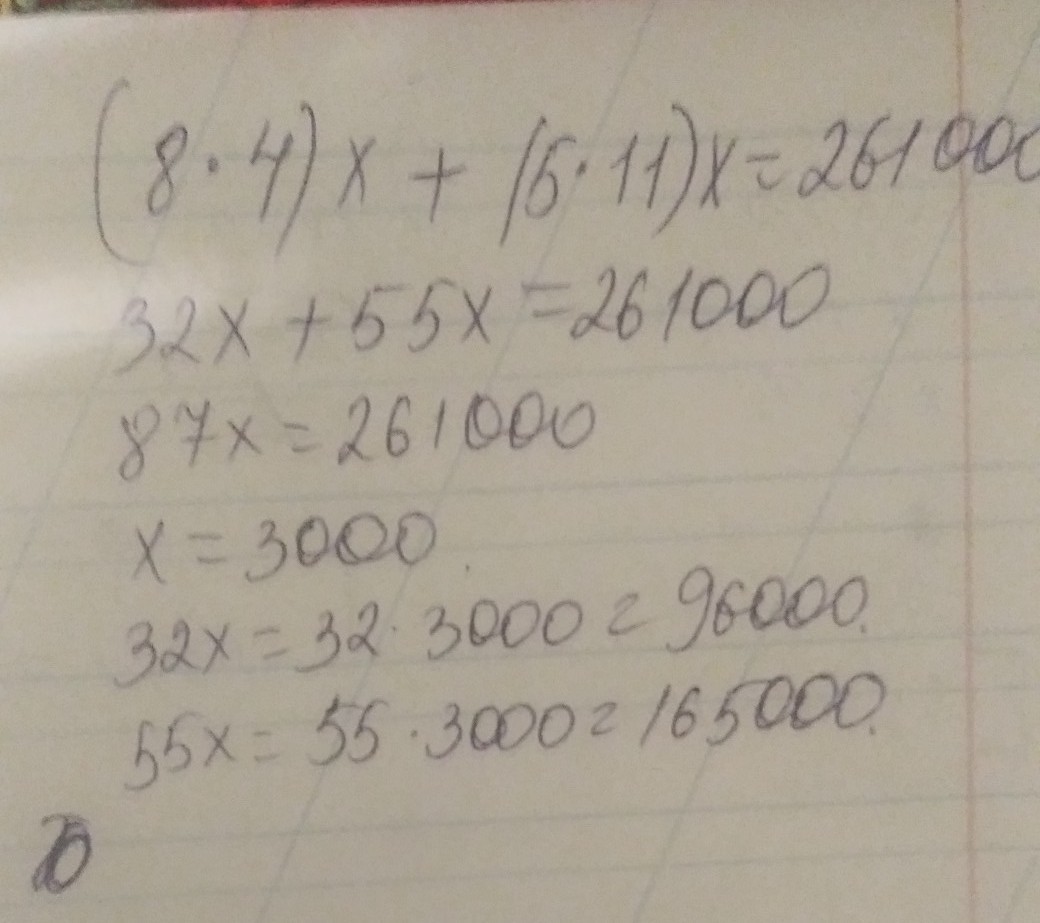 (8·4)x + (5·11)x = 261000
32x + 55x = 261000
87x = 261000
x = 3000
32x = 32·3000 = 96000.
55x = 55·3000 = 165000.